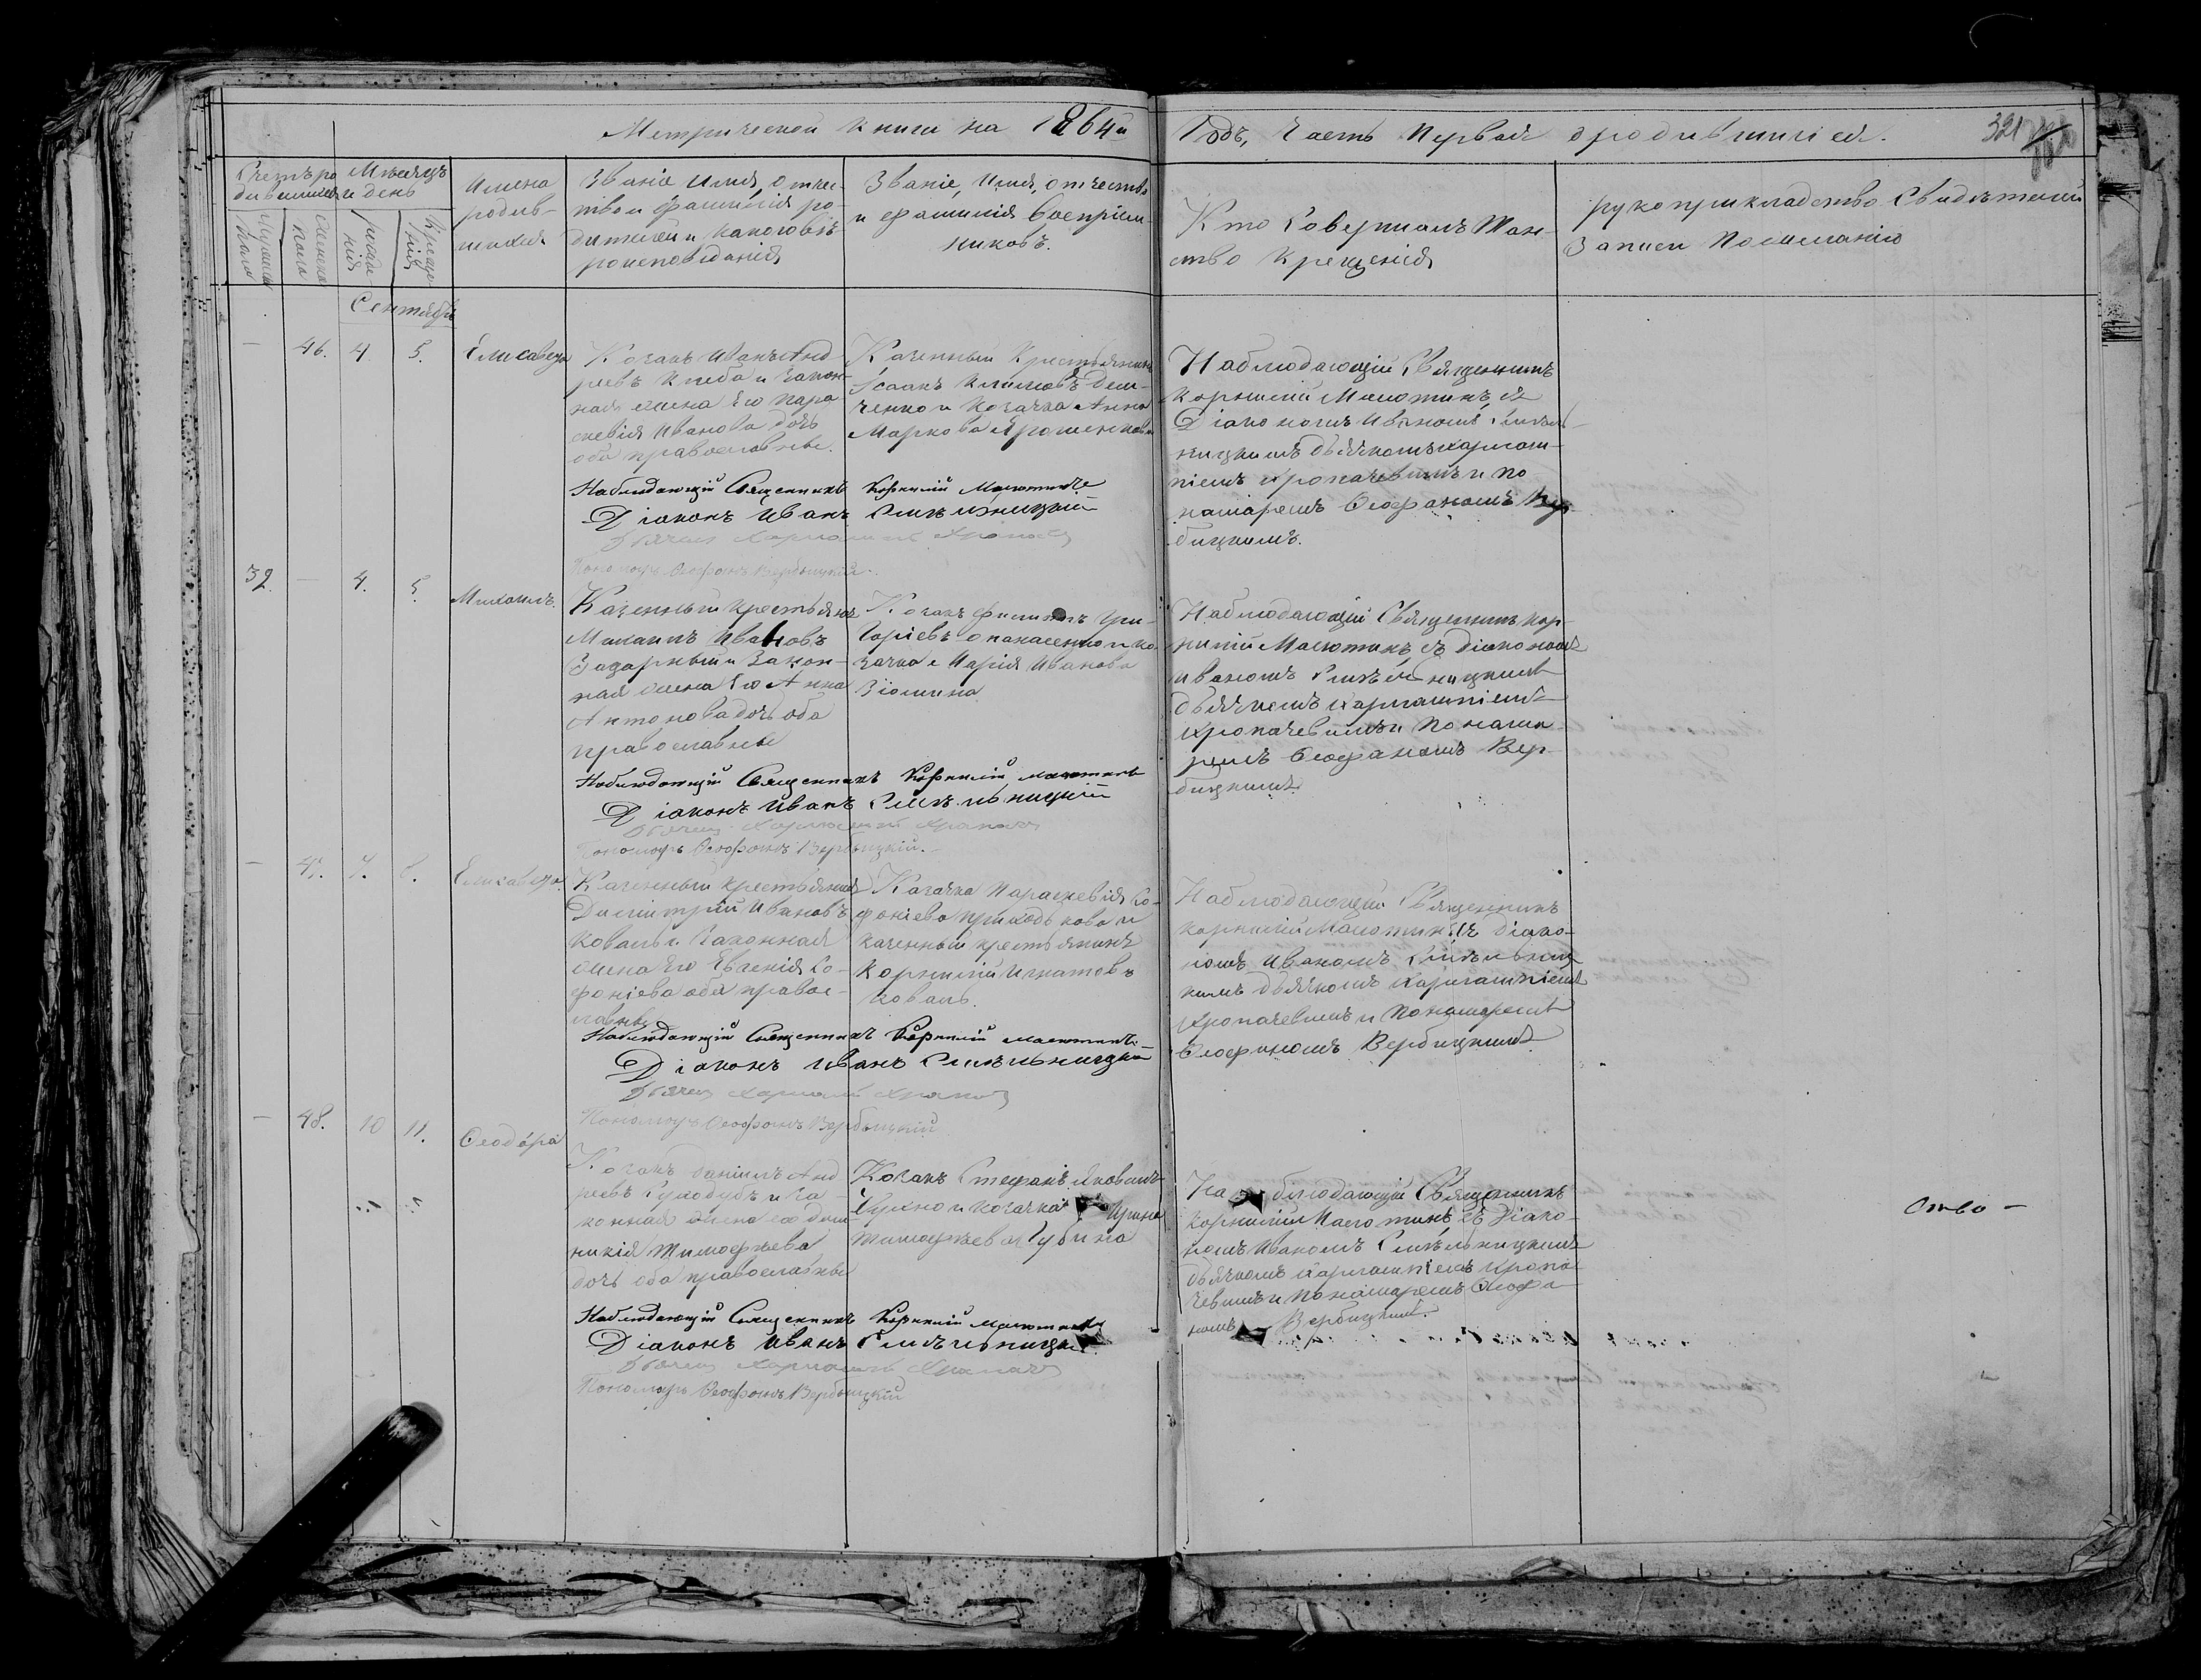 Метрической книги на 1864й Годъ, Часть Первая о родившихся. 321
Счетъ ро
дившихся
Мѣсяцъ
и день
Мужеска
пола
Женска
пола
рожде
нія
Креще
нія
Имена
родив-
шихся
Званіе Имя, Отчес-
тво и фамилія ро-
дителей и какого вѣ-
роисповѣданія
Званіе, Имя, отчество
и фамилія воспріем-
никовъ.
Кто Совершалъ Таи-
ство Крещенія
рукоприкладство Свидѣтелей
Записи По желанію
Сентябрь
— 46. 4. 5. Елисавета
Козакъ Иванъ Анд-
реевъ Кнеба и закон-
ная жена его Пара
скевія Иванова дочь
оба православные.
Казенный Крестьянинъ
Исаакъ Климовъ Дем-
ченко и Козачка Анна
Маркова Ярошенкова
Наблюдающій Священникъ
Корнилій Малютинъ, съ
Діакономъ Иваномъ Синель-
ницкимъ дьячкомъ Харлам-
піемъ Кропачевымъ и По-
намаремъ Ѳеофаномъ Вер-
бицкимъ.
Наблюдающій Священникъ Корнилій Малютинъ
Діаконъ Иванъ Синельницкій
Дьячекъ Харлампій
Пономарь Ѳеофанъ Вербицкій.
32. — 4. 5. Михаилъ.
Казенный крестьянинъ
Михаилъ Ивановъ
Задорный и Закон-
ная жена Его Анна
Антонова дочь оба
православные
Козакъ Филиппъ Гри-
горіевъ Опанасенко и ко-
зачка Марія Иванова
Зіомина
Наблюдающій Священникъ Кор-
нилій Малютинъ, съ Діакономъ
Иваномъ Синельницкимъ
дьячкомъ Харлампіемъ
Кропачевымъ и Понама-
ремъ Ѳеофаномъ Вер-
бицкимъ.
Наблюдающій Священникъ Корнилій Малютинъ
Діаконъ Иванъ Синельницкій
Дьячекъ Харлампій
Пономарь Ѳеофанъ Вербицкій.
— 47. 7. 8. Елисавета.
Казенный крестьянинъ
Димитрій Ивановъ
Коваль и Законная
жена Его Евгенія Со-
фоніева оба правос-
лавные
Козачка Параскевія Со-
фоніева Приходькова и
казенный крестьянинъ
Корнилій Игнатовъ
Коваль.
Наблюдающій Священникъ
Корнилій Малютинъ съ Діако-
номъ Иваномъ Синельниц-
кимъ дьячкомъ Харлампіемъ
Кропачевымъ и Понамаремъ
Ѳеофаномъ Вербицкимъ.
Наблюдающій Священникъ Корнилій Малютинъ
Діаконъ Иванъ Синельницкій
Дьячекъ Харлампій
Пономарь Ѳеофанъ Вербицкій
— 48. 10 11. Ѳеодора
Козакъ Даніилъ Анд
реевъ Суходубъ и за-
конная жена его Дом-
никія Тимофѣева
дочь оба православные
Козакъ Стефанъ Яковлевъ
и козачка Ирина
Тимофѣева Губина
Наблюдающій Священникъ
Корнилій Малютинъ, съ Діако-
номъ Иваномъ Синельницкимъ
дьячкомъ Харлампіемъ Кропа-
чевымъ и Понамаремъ Ѳеофа-
номъ Вербицкимъ.
ство —
Наблюдающій Священникъ Корнилій Малютинъ
Діаконъ Иванъ Синельницкій
Дьячекъ Харлампій
Пономарь Ѳеофанъ Вербицкій